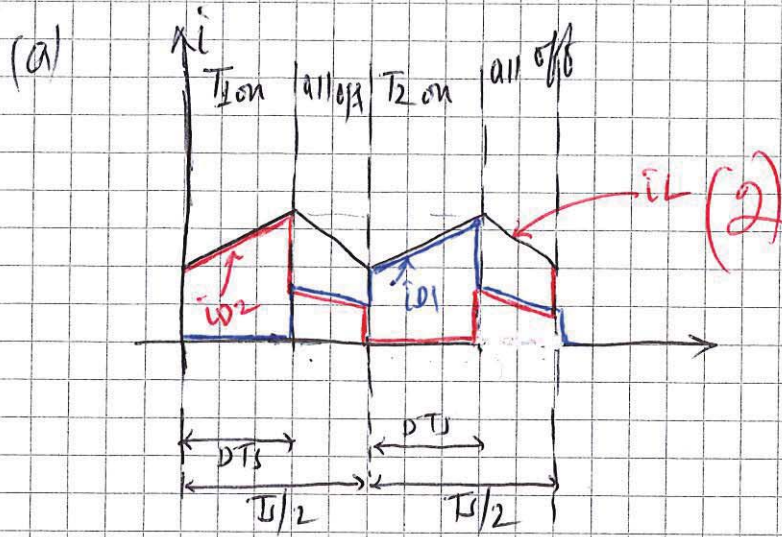 (a)
i
T1 on
all off
T2 on
all off
iL (2)
iD2
iD1
DTs
DTs
Ts/2
Ts/2